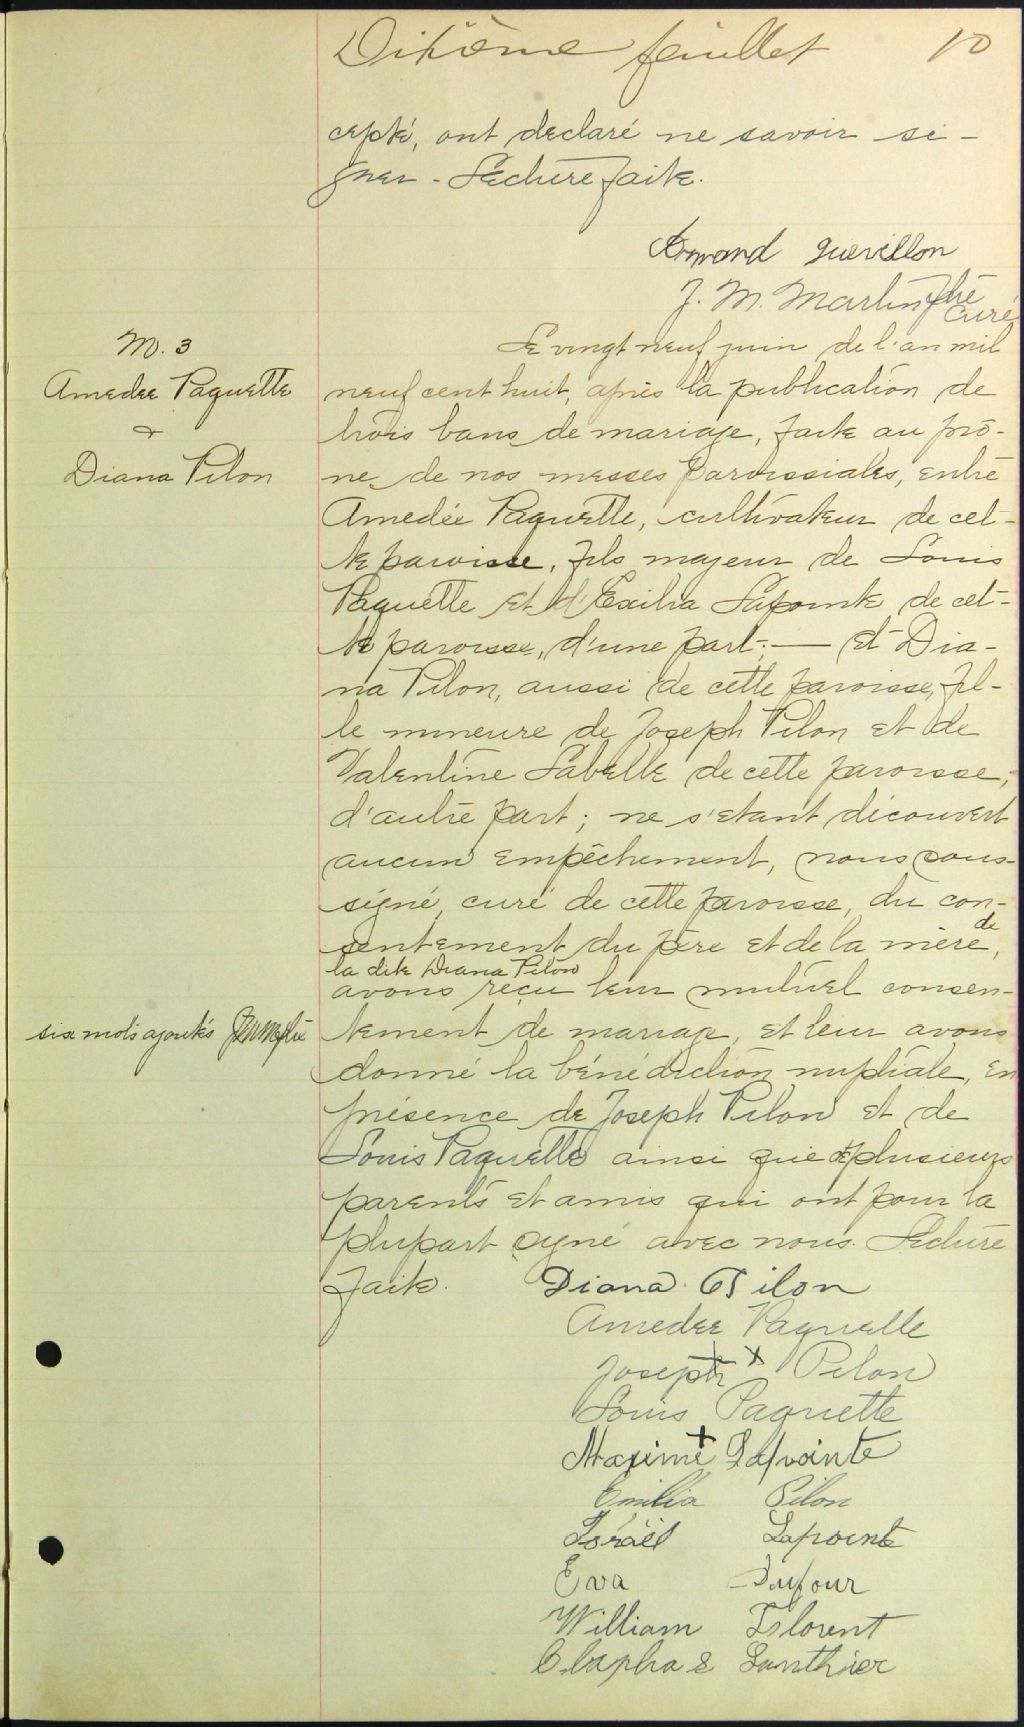 Dixième feuillet 10
cepté, ont déclaré ne savoir si-
gner - Lecture faite.
Armand Quevillon
J. M. Martin Ptre
Curé
M. 3
Amedee Paquette
&
Diana Pilon
Le vingt neuf juin de l'an mil
neuf cent huit, après la publication de
trois bans de mariage, faite au prô-
ne de nos messes paroissiales, entre
Amedée Paquette, cultivateur de cet-
te paroisse, fils majeur de Louis
Paquette et d'Exilia Lapointe de cet-
te paroisse, d'une part; — et Dia-
na Pilon, aussi de cette paroisse, fil-
le mineure de Joseph Pilon et de
Valentine Labelle de cette paroisse,
d'autre part; ne s'étant découvert
aucun empêchement, nous sous-
signé, curé de cette paroisse, du con-
sentement du père et de la mère, de
la dite Diana Pilon
avons reçu leur mutuel consen-
six mots ajoutés
tement de mariage, et leur avons
donné la bénédiction nuptiale, en
présence de Joseph Pilon et de
Louis Paquette ainsi que de plusieurs
parents et amis qui ont pour la
plupart signé avec nous. Lecture
faite.
Diana Pilon
Amedee Paquette
Joseph x Pilon
Louis Paquette
Maxime + Lapointe
Emilia Pilon
Israël Lapointe
Eva Dufour
William Florent
Elapha Gauthier